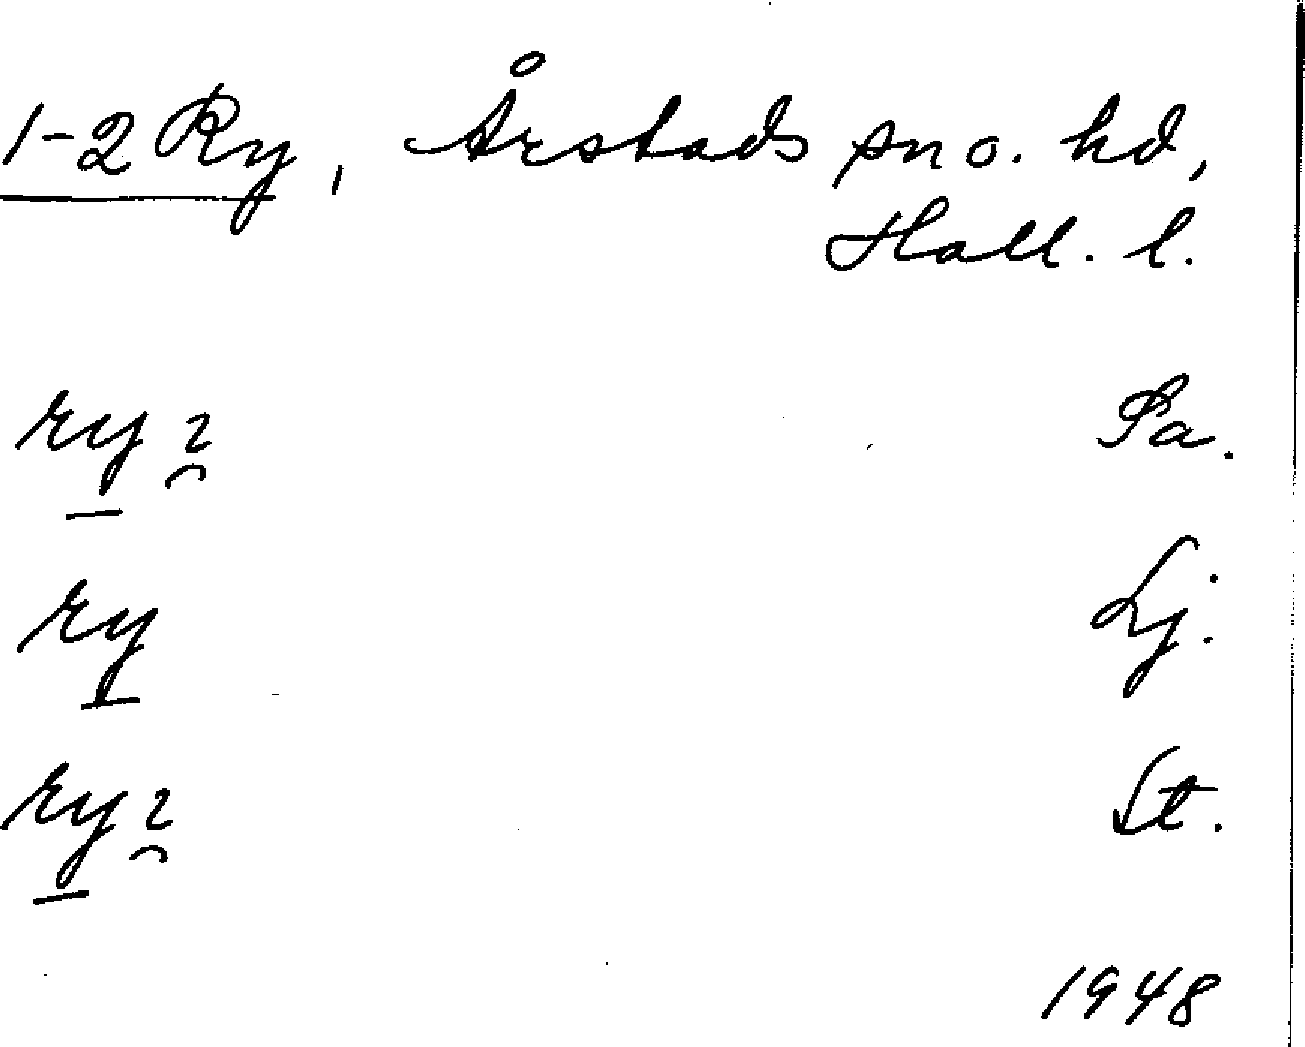 1-2 Ry, Årstads sn o. hd,
Hall. l.
ry Sa.
ry Lj.
ry St.
1948